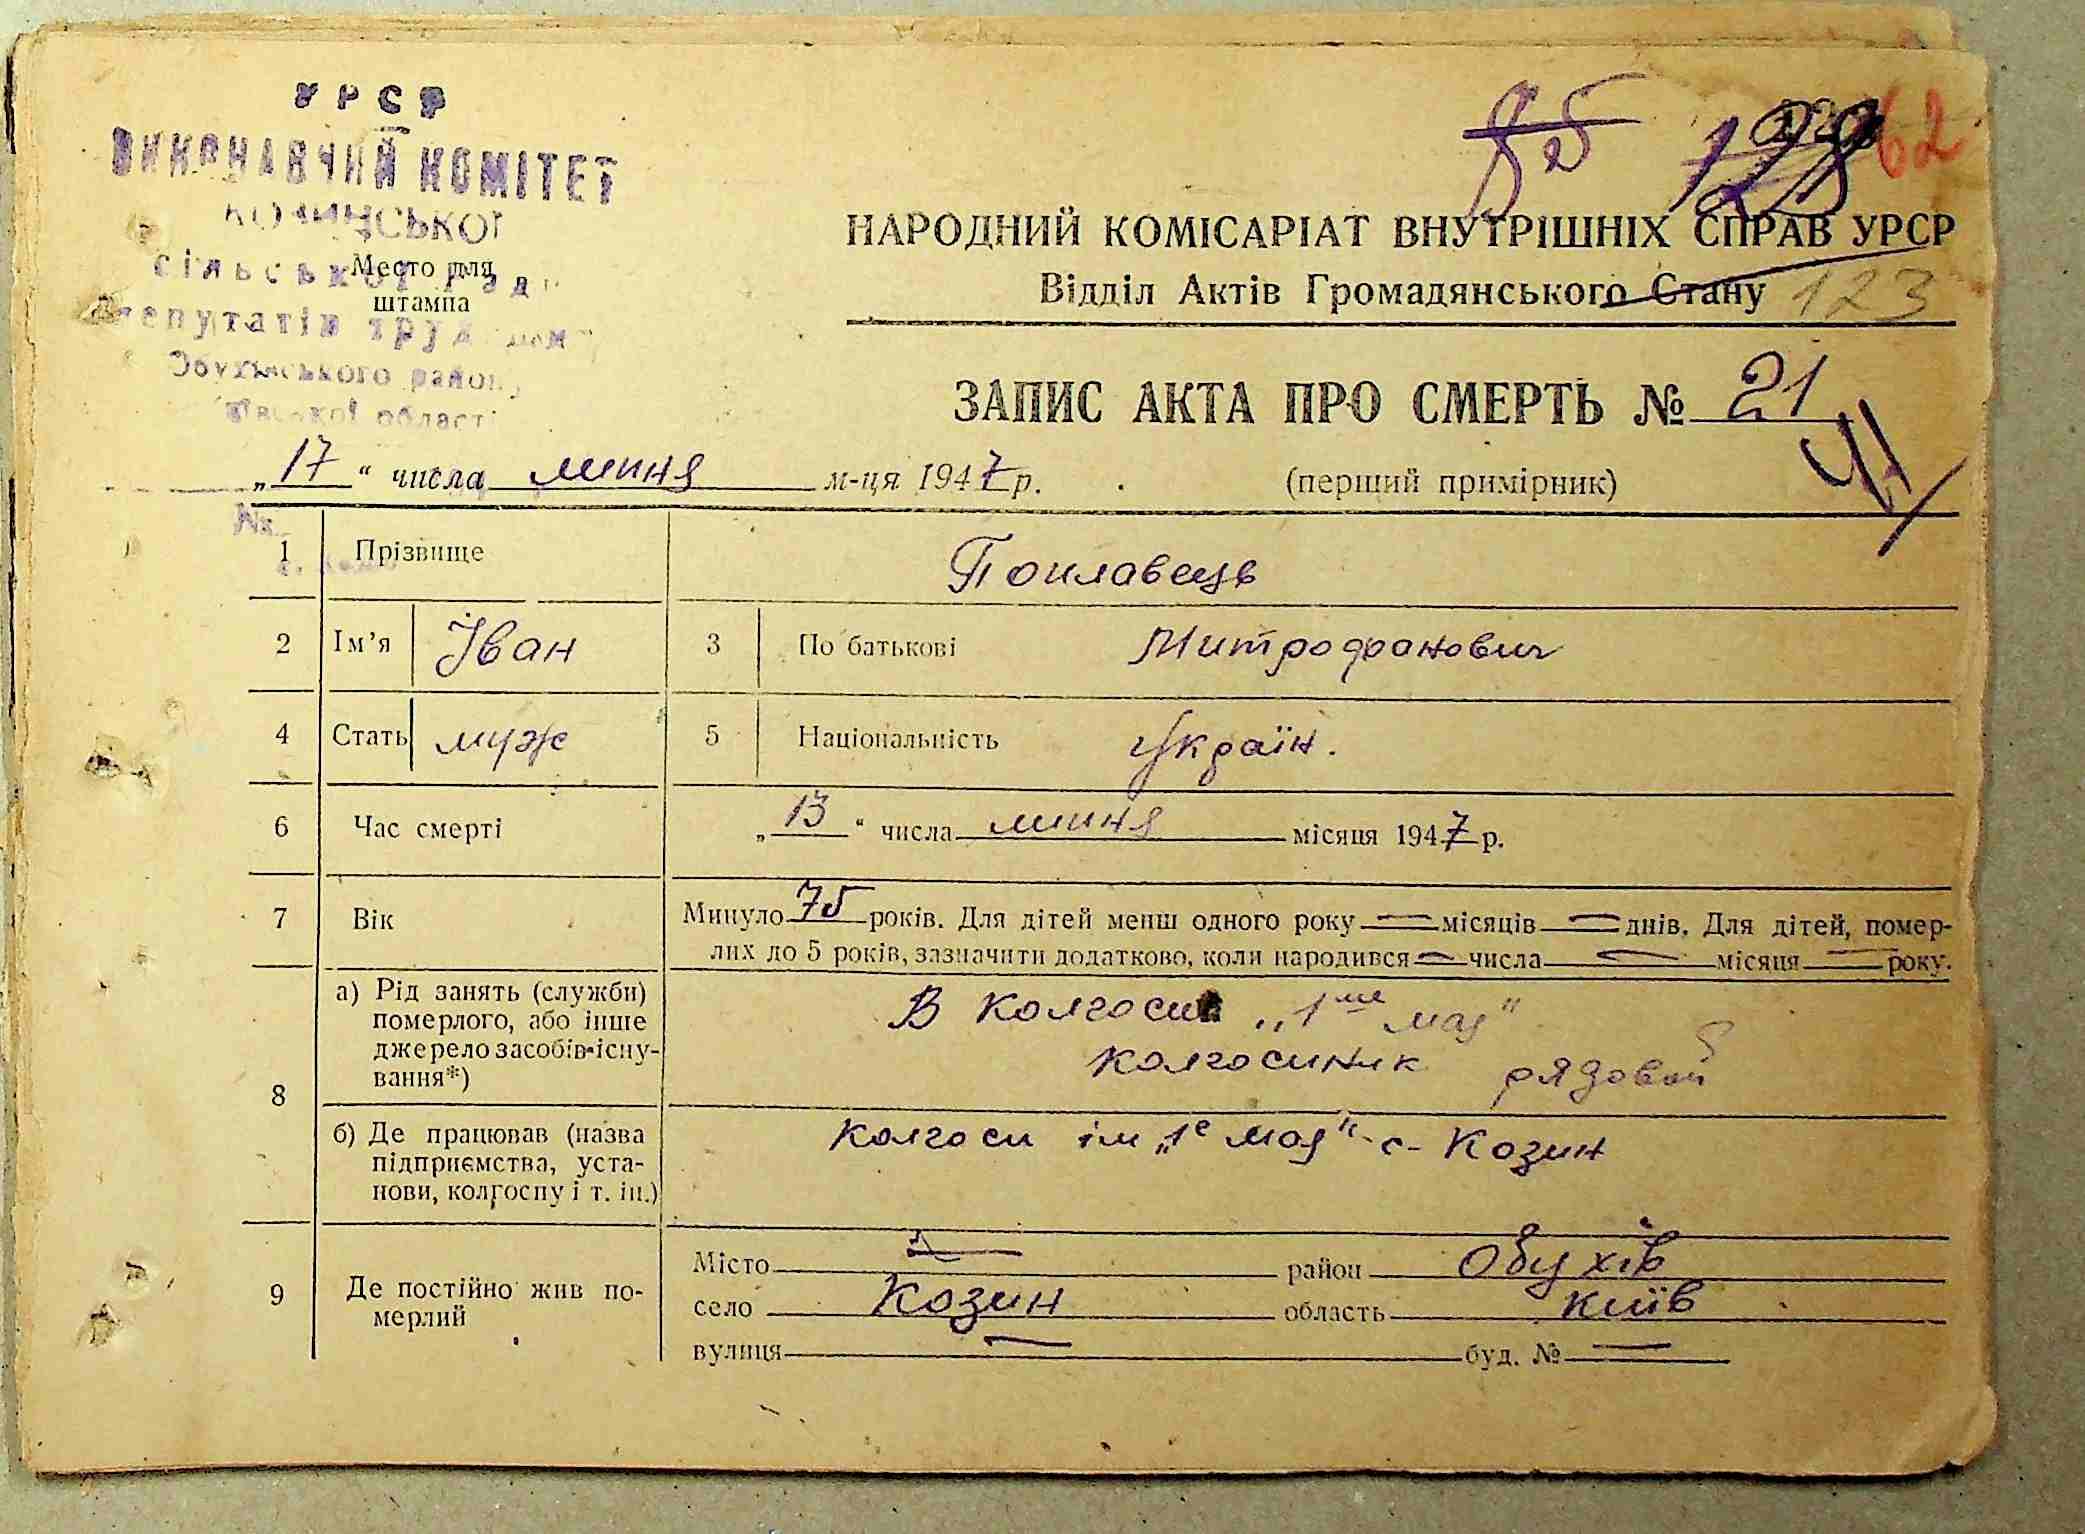 УРСР
ВИКОНАВЧИЙ КОМІТЕТ
КОЗИНСЬКОЇ
сільської Ради
Место для
штампа
депутатів труд
Обухівського району
Київської області
85 128 62
НАРОДНИЙ КОМІСАРІАТ ВНУТРІШНІХ СПРАВ УРСР
Відділ Актів Громадянського Стану 123
ЗАПИС АКТА ПРО СМЕРТЬ № 21
„17“ числа липня м-ця 1947 р. (перший примірник)
№
1 Прізвище Поплавець
2 Ім’я Іван 3 По батькові Митрофанович
4 Стать муж 5 Національність Україн.
6 Час смерті „13“ числа липня місяця 1947 р.
7 Вік Минуло 75 років. Для дітей менш одного року — місяців — днів. Для дітей, помер-
лих до 5 років, зазначити додатково, коли народився — числа — місяця — року.
8 а) Рід занять (служби) померлого, або інше джерело засобів існу-вання*) В колгоспі „1ше мая"
колгоспник рядовой
б) Де працював (назва підприємства, уста-нови, колгоспу і т. ін.) колгосп ім „1е мая" с- Козин
9 Де постійно жив по-мерлий Місто — район Обухів
село Козин область Київ
вулиця — буд. № —